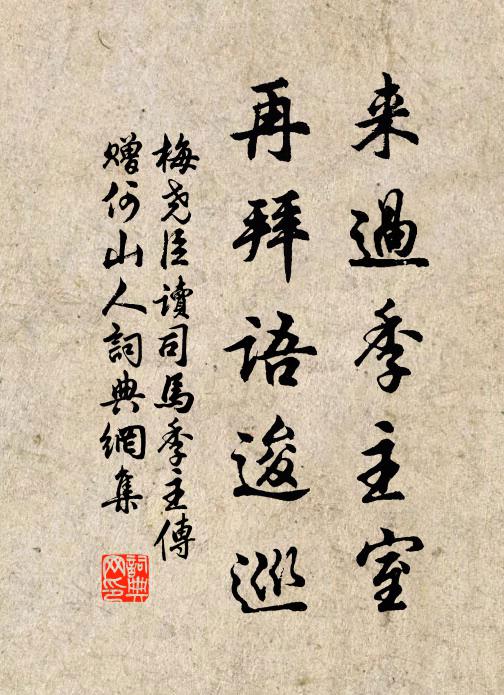 来過季主室
再拜語逡巡
梅堯臣讀司馬季主傳
贈何山人詞典網集
詞典網印